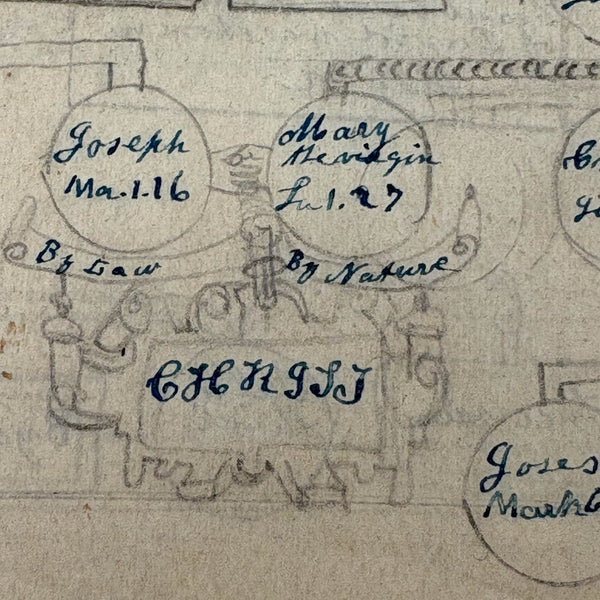 Joseph
Ma.1.16
Mary
the virgin
Lu 1.27
By Law
By Nature
CHRIST
Joses
Mark 6